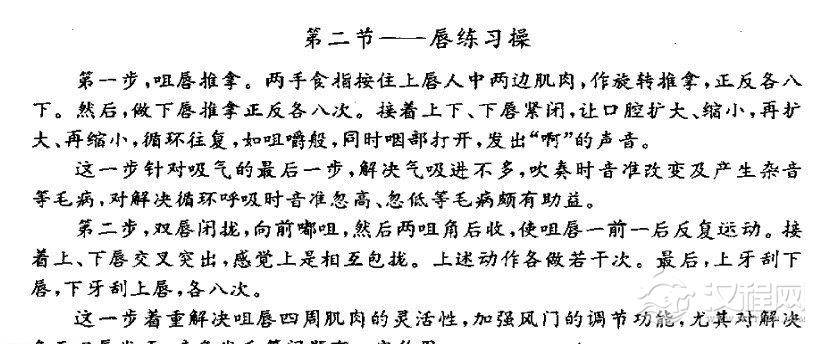 第二节——唇练习操
第一步,咀唇推拿。两手食指按住上唇人中两边肌肉,作旋转推拿,正反各八
下。然后,做下唇推拿正反各八次。接着上下、下唇紧闭,让口腔扩大、缩小,再扩
大、再缩小,循环往复,如咀嚼般,同时咽部打开,发出“啊”的声音。
这一步针对吸气的最后一步,解决气吸进不多,吹奏时音准改变及产生杂音
等毛病,对解决循环呼吸时音准忽高、忽低等毛病颇有助益。
第二步,双唇闭拢,向前嘟咀,然后两咀角后收,使咀唇一前一后反复运动。接
着上、下唇交叉突出,感觉上是相互包拢。上述动作各做若干次。最后,上牙刮下
唇,下牙刮上唇,各八次。
这一步着重解决咀唇四周肌肉的灵活性,加强风门的调节功能,尤其对解决
汉程网